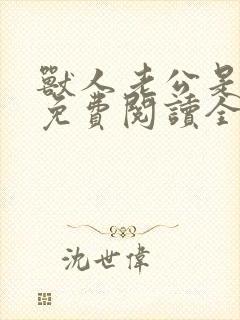 獸人老公是
免費閱讀全
沈世偉